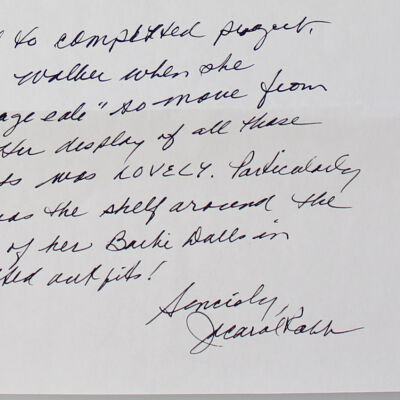 to completed project.
Walker when she
age sale" to move from
Her display of all those
ts was LOVELY. Particularly
was the shelf around the
of her Barbie Dolls in
ted outfits!
Sincerely,